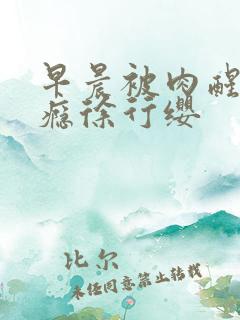 早晨被肉醒
瘾徐行缨
比尔
未经同意禁止转载